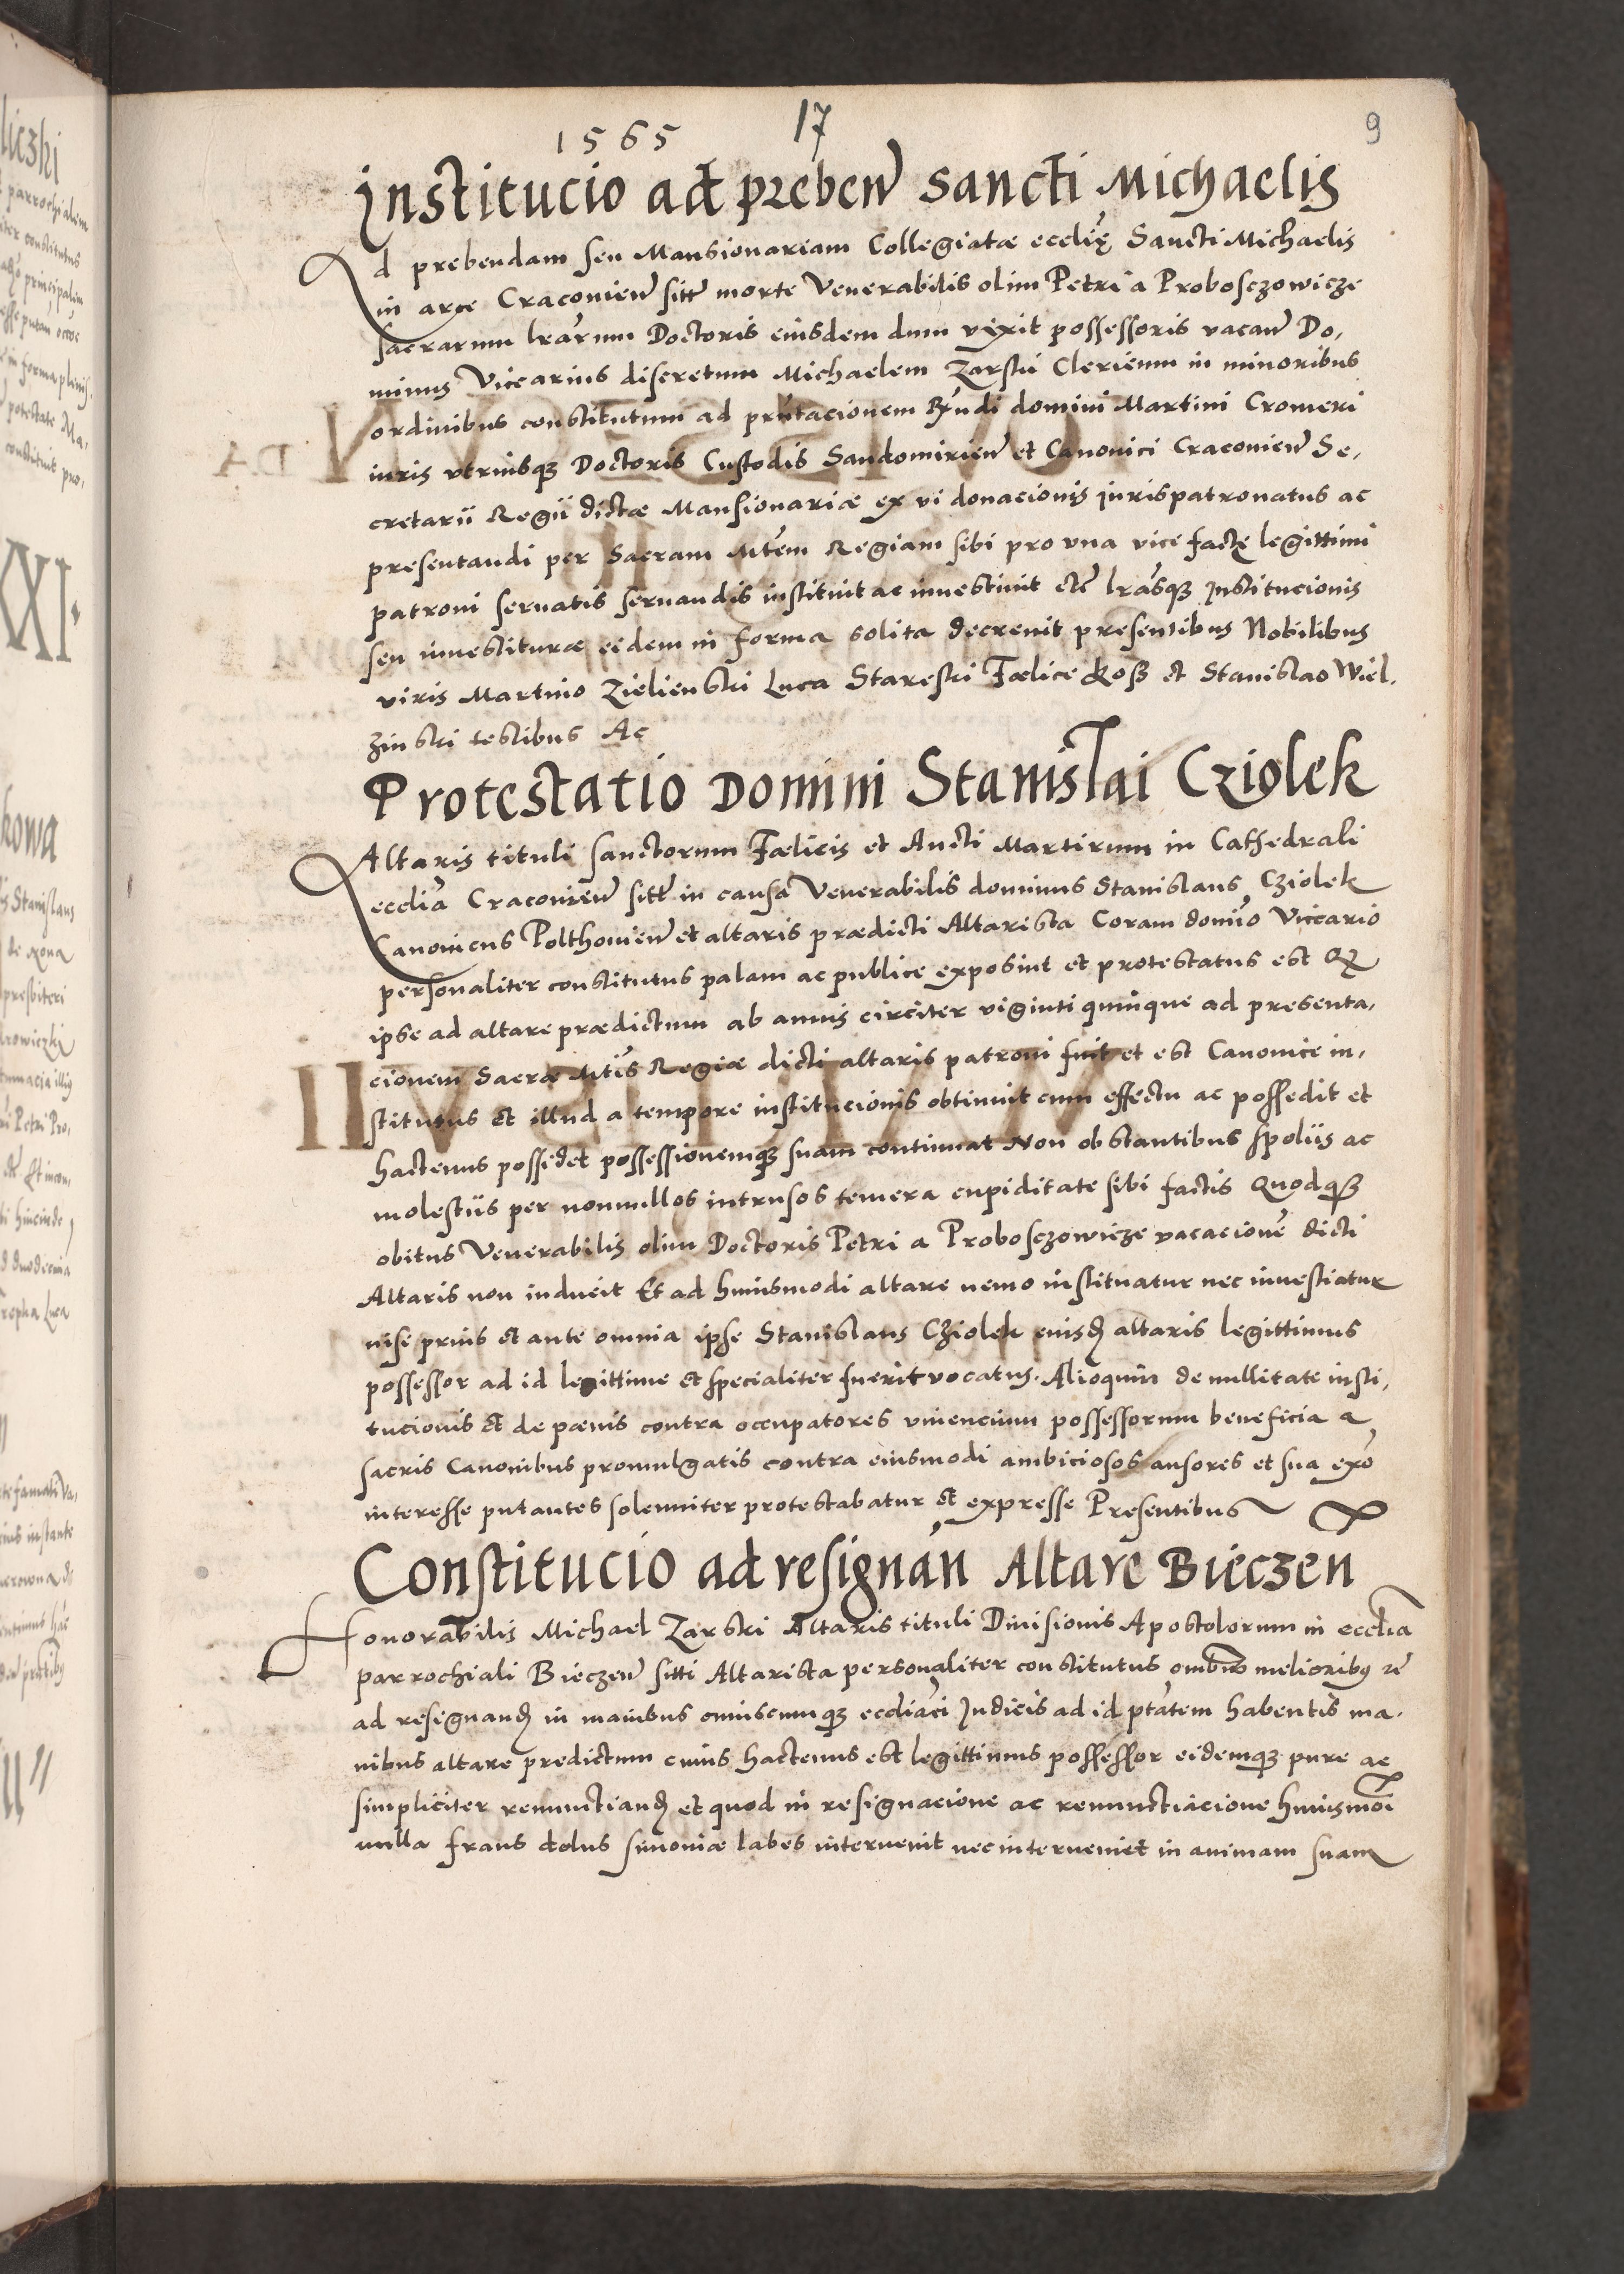 1565
17
9
Institucio ad preben Sancti Michaelis
Ad prebendam seu Mansionariam Collegiatæ ecclię Sancti Michaelis
in arce Cracovien sitt morte Venerabilis olim Petri a Probosczowicze
sacrarum lrarum Doctoris eiusdem dum vixit possessoris vacan Do,
minus Vicearius discretum Michaelem Zarski Clericum in minoribus
ordinibus constitutum ad pntacionem Rndi domini Martini Cromeri
iuris vtriusq3 Doctoris Custodis Sandomirien et Canonici Cracovien Se,
cretarii Regii dictæ Mansionariæ ex vi donacionis jurispatronatus ac
presentandi per Sacram Mtem Regiam sibi pro vna vice factę legittimi
patroni servatis servandis instituit ac investivit etc lrasq3 Institucionis
seu investituræ eidem in forma solita decrevit presentibus Nobilibus
viris Martino Zielienski Luca Stareski Fælice Koss et Stanislao Wiel,
zinski testibus Ac
Protestatio Domini Stanislai Cziolek
Altaris tituli sanctorum Fælicis et Aucti Martirum in Cathedrali
ecclia Cracovien sitt in causa Venerabilis dominus Stanislaus Cziolek
Canonicus Polthovien et altaris prædicti Altarista Coram domino Viceario
personaliter constitutus palam ac publice exposuit et protestatus est Q
ipse ad altare prædictum ab annis circiter viginti quinque ad presenta,
cionem Sacræ Mtis Regiæ dicti altaris patroni fuit et est Canonice in,
stitutus et illud a tempore institucionis obtinuit cum effectu ac possedit et
hactenus possidet possessionemq3 suam continuat Non obstantibus spoliis ac
molestiis per nonnullos intrusos temera cupiditate sibi factis Quodq3
obitus Venerabilis olim Doctoris Petri a Proboszowicze vacacionem dicti
Altaris non induxit Et ad huiusmodi altare nemo instituatur nec investiatur
nise prius et ante omnia ipse Stanislaus Cziolek eiusd altaris legittimus
possessor ad id legittime et specialiter fuerit vocatus. Alioquin de nullitate insti,
tucionis et de pænis contra occupatores viuencium possessorum beneficia a
sacris Canonibus promulgatis contra eiusmodi ambiciosos ausores et sua exo
interesse putantes solenniter protestabatur et expresse Presentibus
Constitucio ad resignan Altare Bieczen
Honorabilis Michael Zarski Altaris tituli Diuisionis Apostolorum in ecclia
parrochiali Bieczen sitti Altarista personaliter constitutus omibus melioribus re
ad resignand in manibus cuiuscumq3 eccliaci Judicis ad id ptatem habentis ma,
nibus altare predictum cuius hactenus est legittimus possessor eidemq3 pure ac
simpliciter renunctiand et quod in resignacione ac renunctiacione huiusmoi
nulla fraus dolus simoniæ labes intervenit nec interveniet in animam suam